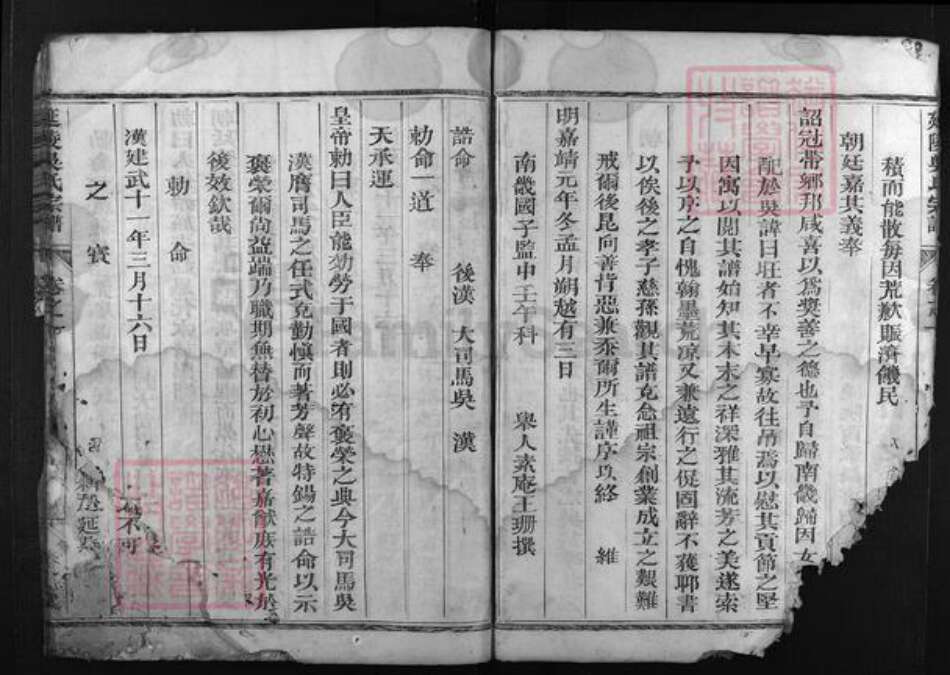 積而能散每因荒歉賑濟饑民
朝廷嘉其義奉
詔冠帶鄉邦咸喜以為奬善之德也予自歸南畿歸因女
配於吳諱曰珏者不幸早寡故往吊焉以慰其貢節之堅
因寓以閱其譜始知其本末之祥深雅其流芳之美遂索
予以序之自愧翰墨荒凉又兼遠行之促固辭不獲聊書
以俟後之孝子慈孫觀其譜克念祖宗創業成立之艱難
戒爾後昆向善背惡兼忝爾所生謹序以終 維
明嘉靖元年冬孟月朔越有三日
南畿國子監中壬午科 舉人素庵王珊撰
延陵吳氏宗譜 卷之
誥命 後漢 大司馬吳 漢
勅命一道 奉
天承運
皇帝勅曰人臣能効勞于國者則必有褒榮之典今大司馬吳
漢膺司馬之任式克勤慎而著芳聲故特錫之誥命以示
褒榮爾尚益端乃職期無替於初心懋著嘉猷庶有光於
後效欽哉
勅命
漢建武十一年三月十六日
之寶
延陵吳氏宗譜 卷之